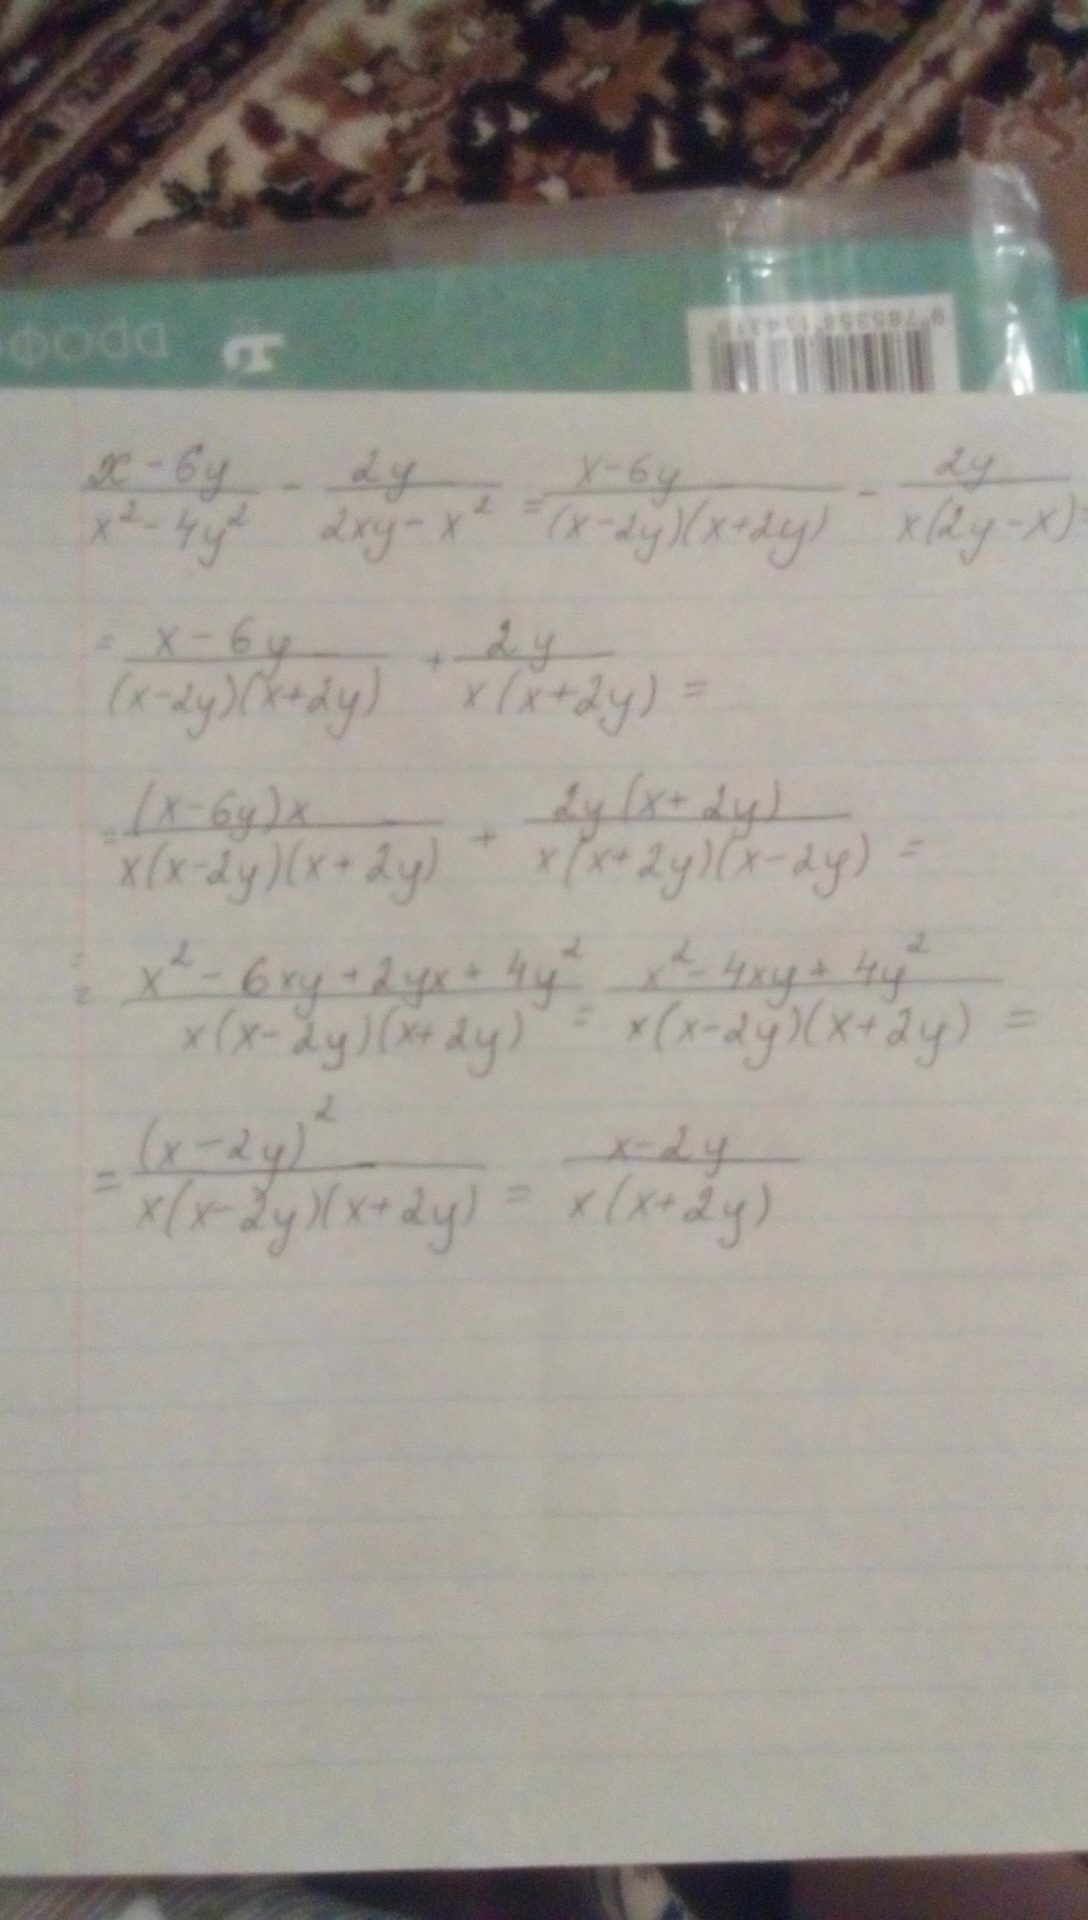 9 785358 114319
\frac{x-6y}{x^2-4y^2} - \frac{2y}{2xy-x^2} = \frac{x-6y}{(x-2y)(x+2y)} - \frac{2y}{x(2y-x)} =
= \frac{x-6y}{(x-2y)(x+2y)} + \frac{2y}{x(x+2y)} =
= \frac{(x-6y)x}{x(x-2y)(x+2y)} + \frac{2y(x+2y)}{x(x+2y)(x-2y)} =
= \frac{x^2-6xy+2yx+4y^2}{x(x-2y)(x+2y)} = \frac{x^2-4xy+4y^2}{x(x-2y)(x+2y)} =
= \frac{(x-2y)^2}{x(x-2y)(x+2y)} = \frac{x-2y}{x(x+2y)}